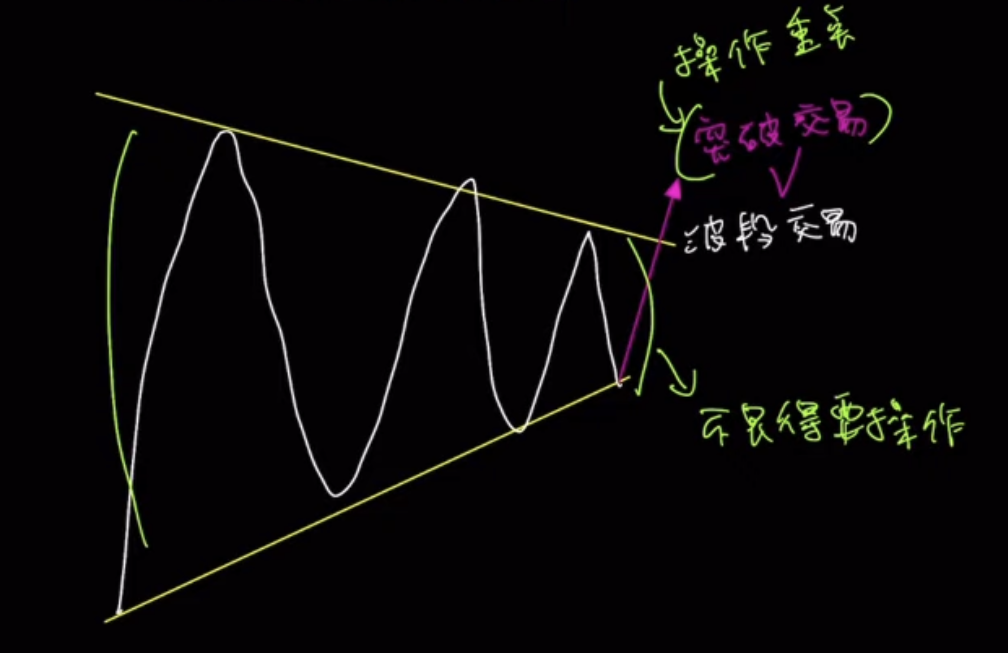 操作
(突破交易)
波段交易
不見得要操作